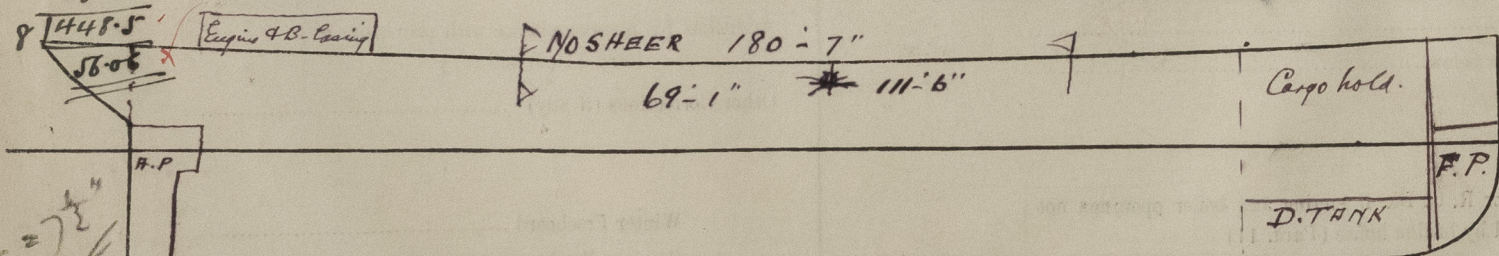 8 | 448.5
56.06
Engine & B. Casing
NO SHEER 180'-7"
69'-1" 111'-6"
Cargo hold.
A.P
F.P.
D.TANK